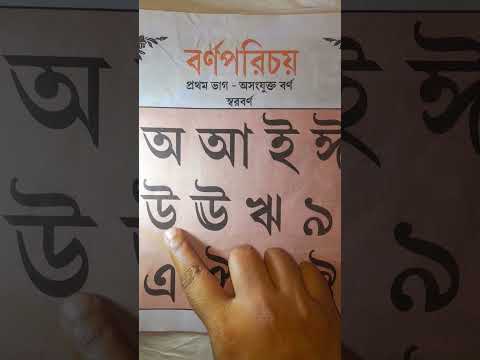 বর্ণপরিচয়
প্রথম ভাগ - অসংযুক্ত বর্ণ
স্বরবর্ণ
অ আ ই ঈ
উ ঊ ঋ ঌ
এ